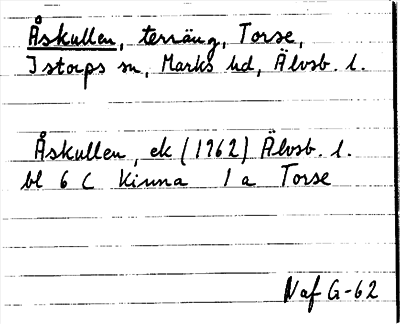 Åskullen, terräng, Torse,
Istorps sn, Marks hd, Älvsb. l.
Åskullen, ek (1962) Älvsb. l.
bl 6 C Kinna 1 a Torse
Naf G-62